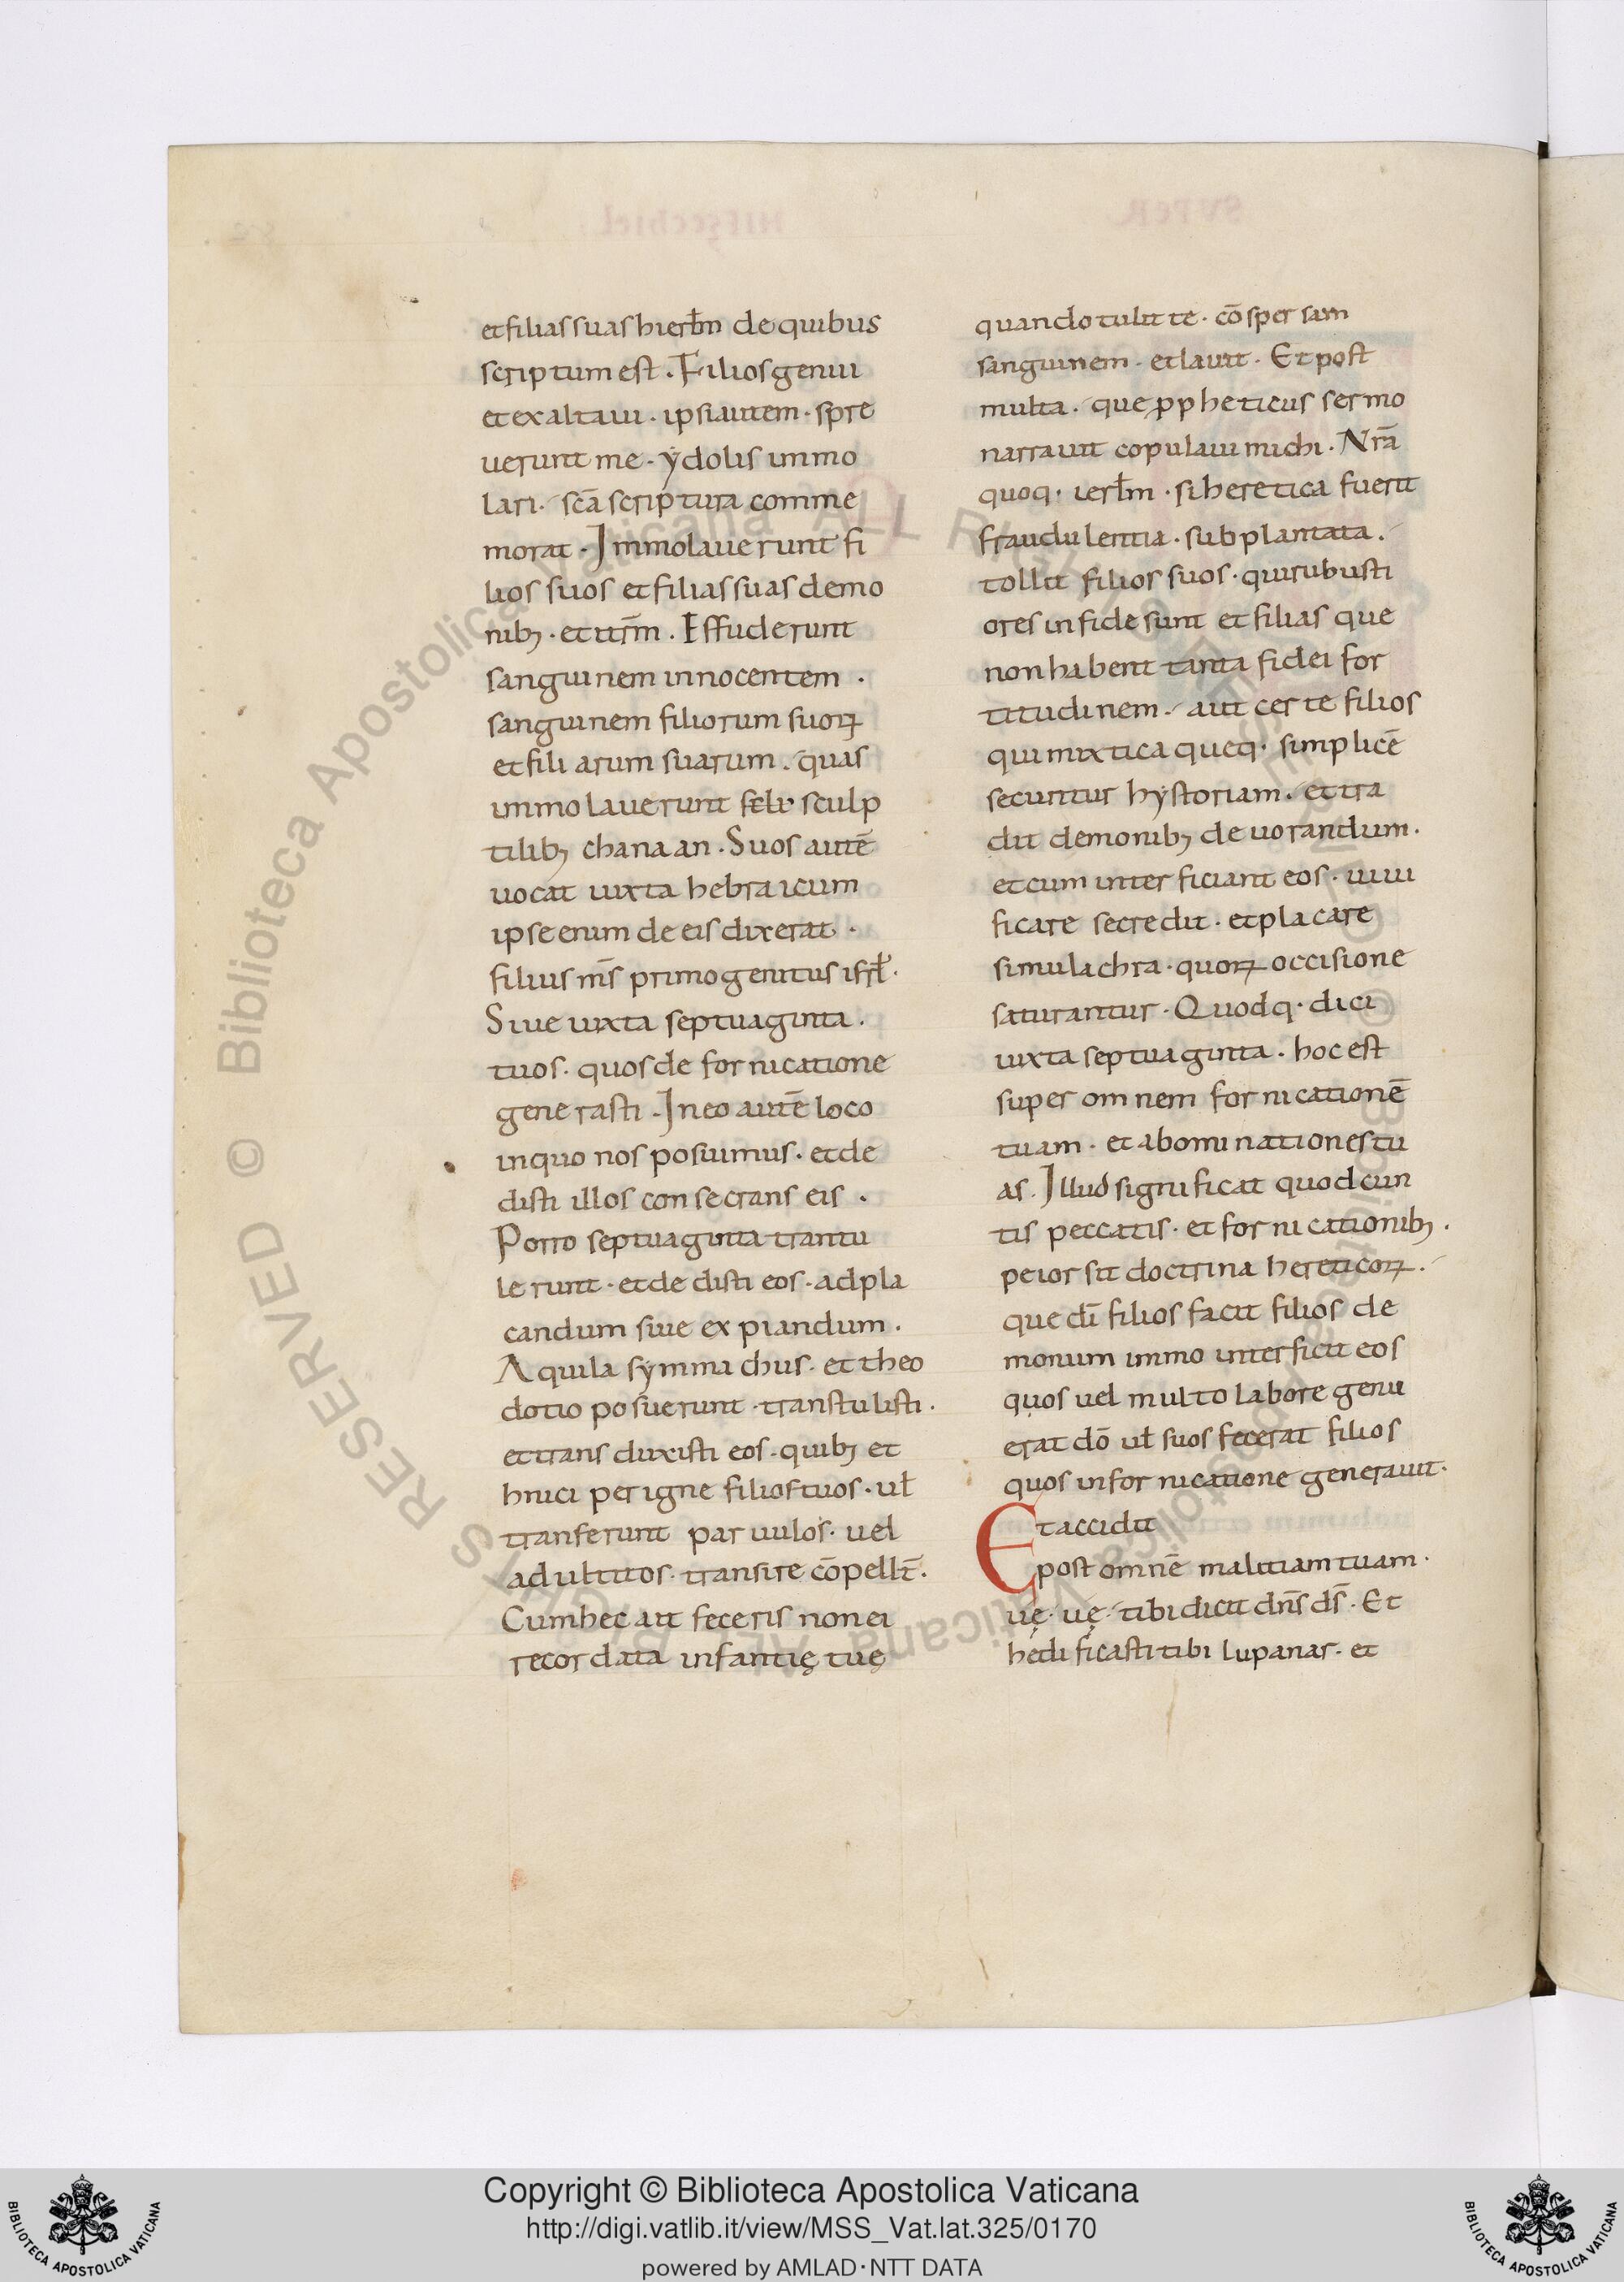 et filias suas hierłm de quibus
scriptum est. Filios genui
et exaltaui. ipsi autem. spre
uerunt me. ydolis immo
lari. scā scriptura comme
morat. Immolauerunt fi
lios suos et filias suas demo
nibꝫ. et itrm̄. Effuderunt
sanguinem innocentem.
sanguinem filiorum suoꝝ
et filiarum suarum. quas
immolauerunt sculp
tilibꝫ chanaan. Suos autē
uocat iuxta hebraicum
ipse enim de eis dixerat.
filius ms̄ primogenitus isrł.
Siue iuxta septuaginta.
tuos. quos de fornicatione
generasti. In eo autē loco
in quo nos posuimus. et de
disti illos consecrans eis.
Porro septuaginta trantu
lerunt. et dedisti eos. ad pla
candum siue expiandum.
Aquila symmachus. et theo
dotio posuerunt. transtulisti.
et transduxisti eos. quibꝫ et
hnici per igne filios tuos. uł
tranferunt paruulos. uel
adultitos. transire cōpellt̄.
Cum hec ait feceris non ei
recordata infantię tuę
quando tulit te. cōspersam
sanguinem. et lauit. Et post
multa. que ꝓpheticus sermo
narrauit copulaui michi. Nrā
quoq. ierłm. si heretica fuerit
fraudulentia. subplantata.
tollit filios suos. qui rubusti
ores in fide sunt et filias que
non habent tanta fidei for
titudinem. aut certe filios
qui mixtica queq. simplicē
secuntur hystoriam. et tra
dit demonibꝫ deuorandum.
et cum interficiant eos. uiui
ficare se credit. et placare
simulachra. quoꝝ occisione
saturantur. Quodq. dici
iuxta septuaginta. hoc est
super omnem fornicationē
tuam. et abominationes tu
as. Illud significat quod cun
tis peccatis. et fornicationibꝫ.
peior sit doctrina hereticoꝝ.
que dī filios facit filios de
monum immo interficit eos
quos uel multo labore genu
erat dō uł suos fecerat filios
quos in fornicatione generauit.
Et accidit
post omnē malitiam tuam.
uę. uę. tibi dicit dn̄s ds̄. Et
hedificasti tibi lupanar. et
Copyright © Biblioteca Apostolica Vaticana
http://digi.vatlib.it/view/MSS_Vat.lat.325/0170
powered by AMLAD·NTT DATA